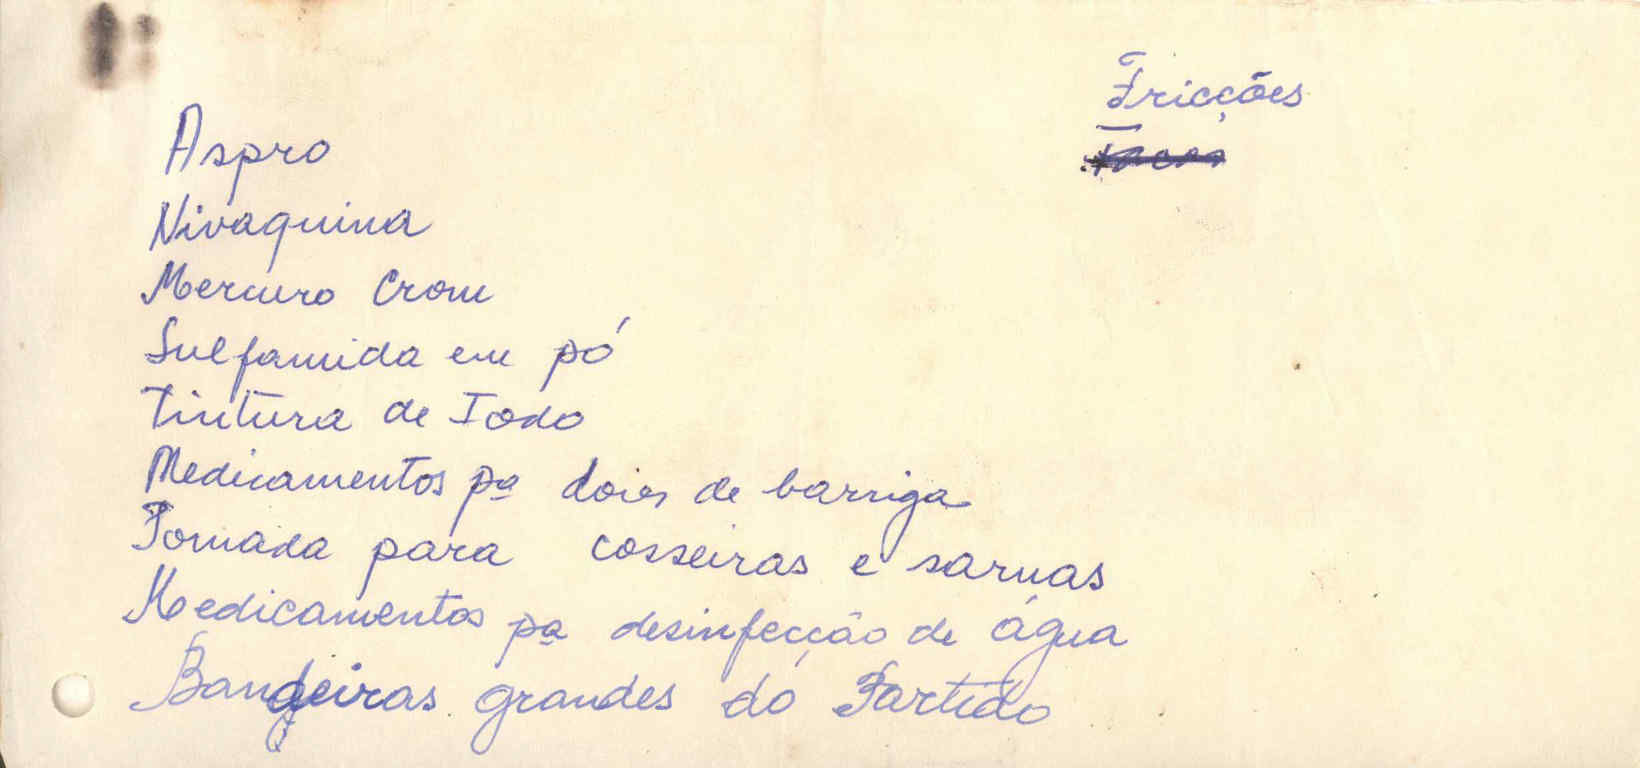 Fricções
Aspro
Nivaquina
Mercuro Crom
Sulfamida em pó
Tintura de Iodo
Medicamentos pª dores de barriga
Pomada para cosseiras e sarnas
Medicamentos pª desinfecção de água
Bandeiras grandes do Partido